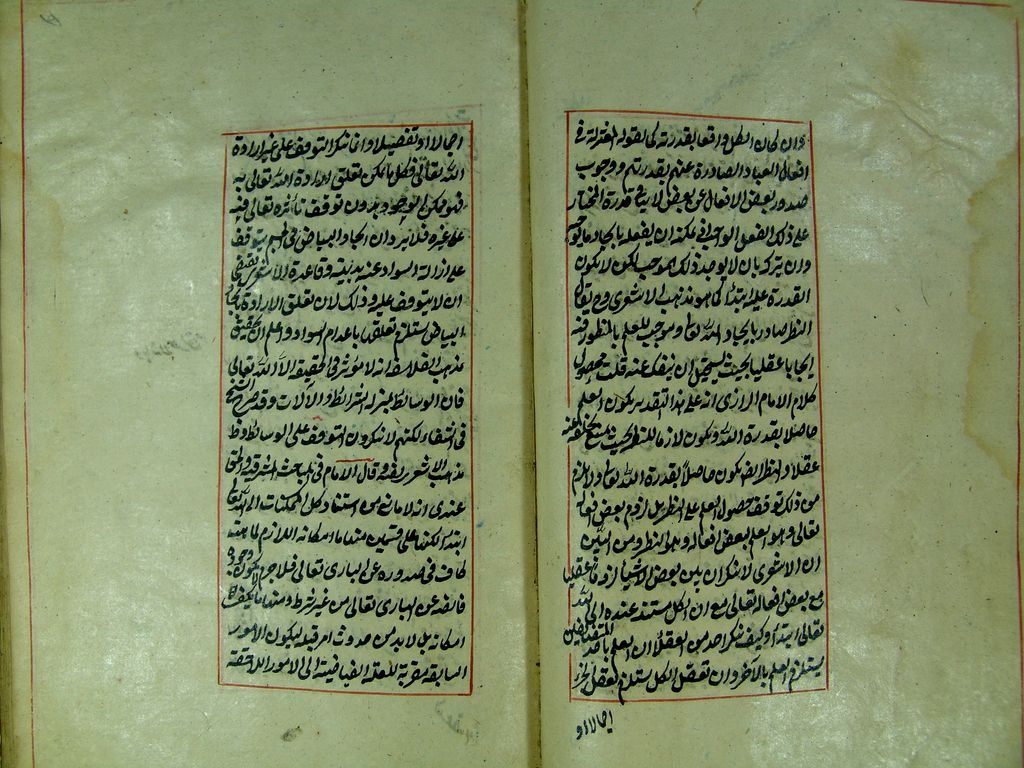 وان كان الكل واقعا بقدرته كما يقوله المعتزلة في
افعال العباد الصادرة عنهم بقدرتهم ووجوب
صدور بعض الافعال عن بعض لا ينافي قدرة المختار
على ذلك الفعل الواجب اذ يمكنه ان يفعله بايجاد ما يوجبه
وان يتركه بان لا يوجد ذلك الموجب لكن لا يكون
القدرة عليه ابتداء كما هو مذهب الاشعري وح يقال
النظر صادر بايجاد الله تعالى وموجب للعلم بالمنظور فيه
ايجابا عقليا بحيث يستحيل ان ينفك عنه قلت محصول
كلام الامام الرازي انه على هذا التقدير يكون العلم
حاصلا بقدرة الله ويكون لازما للنظر بحيث يمتنع تخلفه عنه
عقلا والنظر ايضا يكون حاصلا بقدرة الله تعالى ولا يلزم
من ذلك توقف حصول العلم على النظر بل لزوم بعض افعاله
تعالى وهو العلم لبعض افعاله وهو النظر ومن البين
ان الاشعري لا ينكر ان بين بعض الاشياء لزوما عقليا
مع بعض افعاله تعالى مع ان الكل مستند عنده الى الله
تعالى ابتداء وكيف ينكر احد من العقلاء ان العلم باحد المتضايفين
يستلزم العلم بالآخر وان تعقل الكل يستلزم تعقل الجزء
اجمالا او
اجمالا او تفصيلا وانما ننكر التوقف على غير ارادة
الله تعالى فكل ما يمكن تعلق الارادة الله تعالى به
فهو ممكن الوجود بدون توقف تأثيره تعالى فيه
على غيره فلا يرد ان ايجاد البياض في الجسم يتوقف
على ازالة السواد عنه بديهية وقاعدة الاشعري تقتضي
ان لا يتوقف عليه وذلك لان تعلق الارادة بايجاد
البياض يستلزم تعلقها باعدام السواد واعلم ان تحقيق
مذهب الفلاسفة انه لا مؤثر في الحقيقة الا الله تعالى
فان الوسائط بمنزلة الشرائط والآلات وقد صرح الشيخ
في الشفاء لكنهم لا ينكرون التوقف على الوسائط
مذهب الاشعري ينفيه وقال الامام في المباحث المشرقية والحق
عندي انه لا مانع من استناد كل الممكنات الى الله تعالى
ابتداء لكنها على قسمين منها ما امكانه اللازم لماهيته
كاف في صدوره عن الباري تعالى فلا جرم يكون وجوده
فائضا عن الباري تعالى من غير شرط ومنها ما لا يكفي
امكانه بل لا بد من حدوث امر قبله ليكون الامور
السابقة مقربة للعلة الفياضة الى الامور اللاحقة